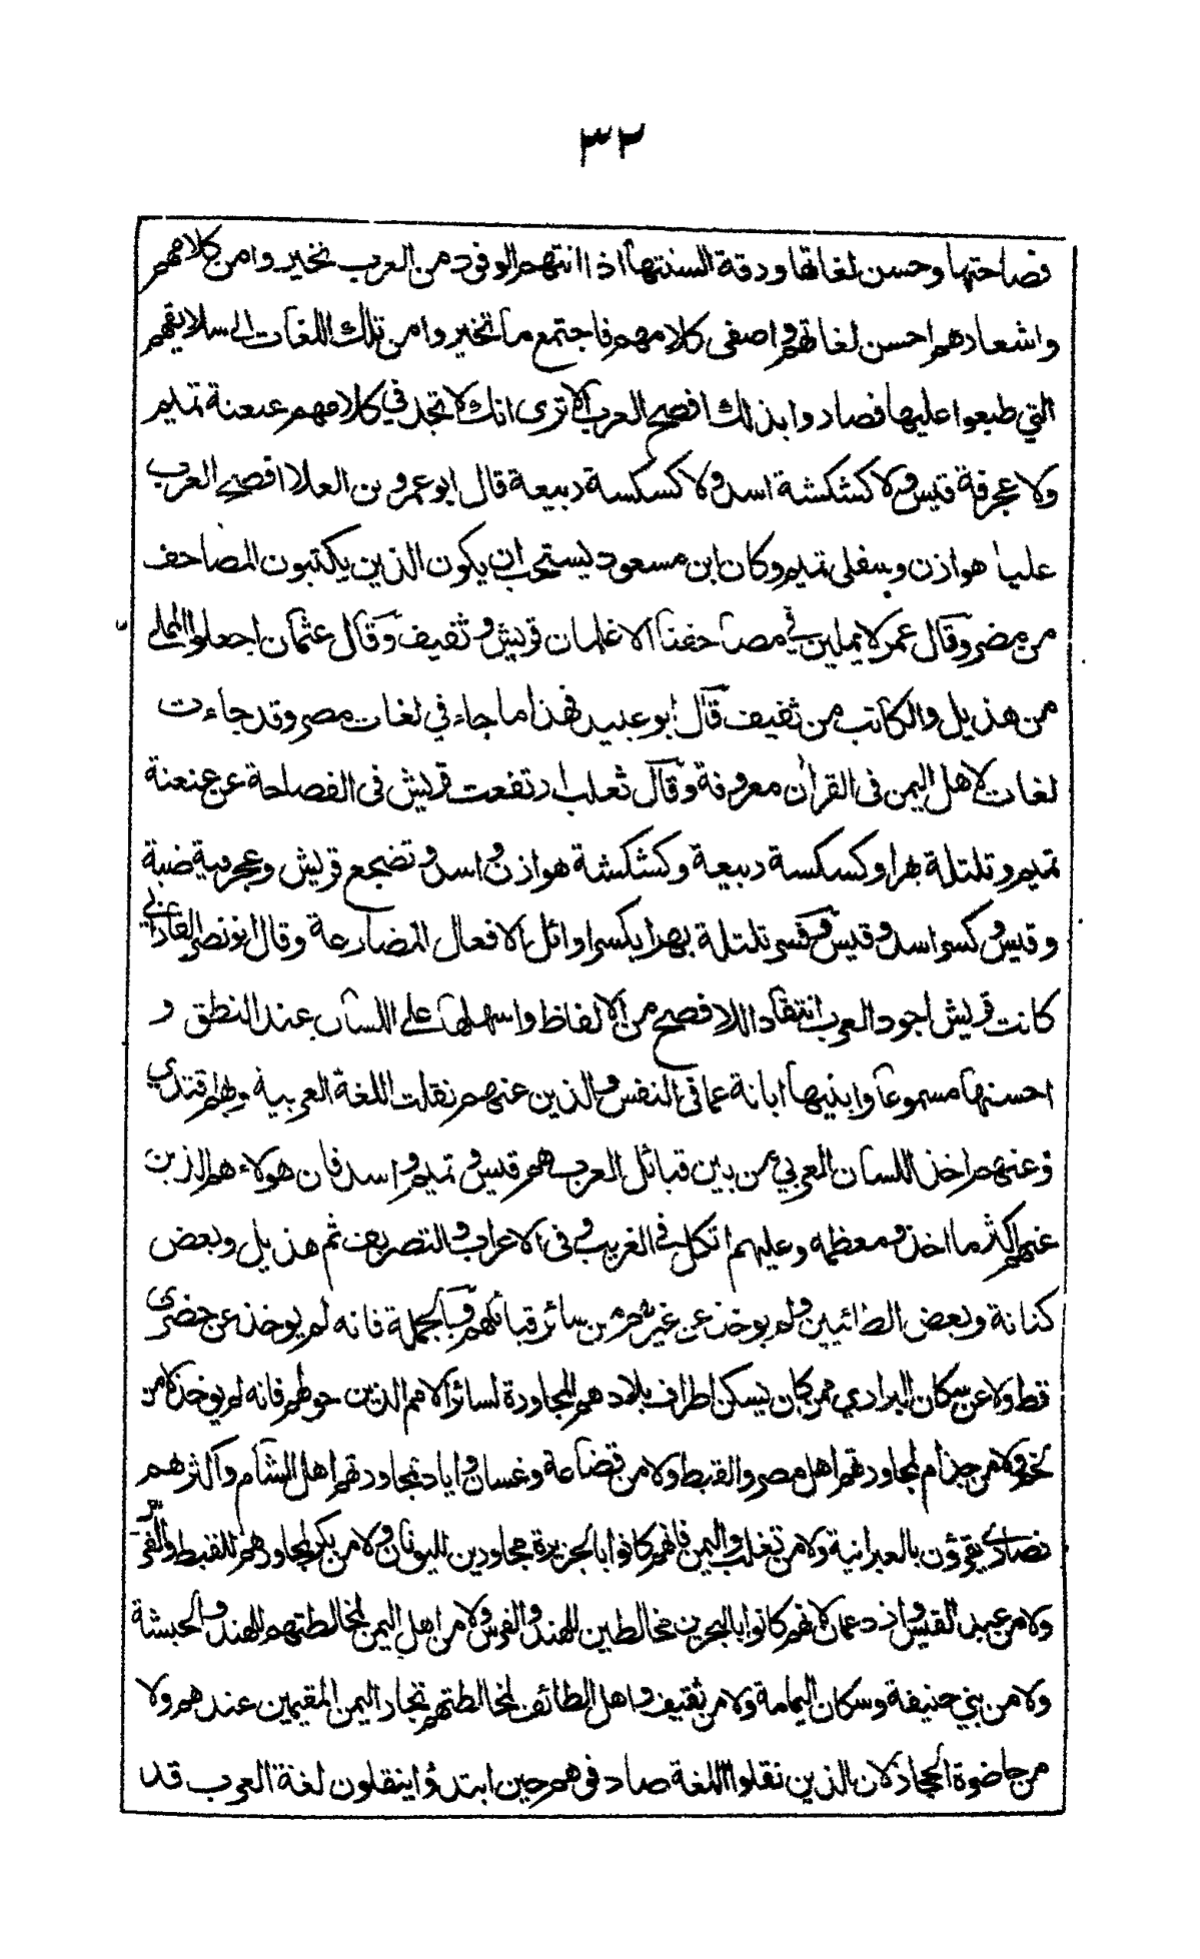 ٣٢
فصاحتها وحسن لغاتها ودقة السنتها اذا انتهم الوفود من العرب تخيروا من كلامهم
واشعارهم احسن لغاتهم واصفى كلامهم فاجتمع ما تخيروا من تلك اللغات الى سلايقهم
التي طبعوا عليها فصاروا بذلك افصح العرب الا ترى انك لا تجد في كلامهم عنعنة تميم
ولا عجرفة قيس ولا كشكشة اسد ولا كسكسة ربيعة قال ابو عمرو بن العلا افصح العرب
عليا هوازن وسفلى تميم وكان ابن مسعود يستحب ان يكون الذين يكتبون المصاحف
من مضر وقال عمر لا يملين في مصاحفنا الا غلمان قريش وثقيف وقال عثمان اجعلوا المملي
من هذيل والكاتب من ثقيف قال ابو عبيد فهذا ما جاء في لغات مصر وقد جاءت
لغات لاهل اليمن فى القران معروفة وقال ثعلب ارتفعت قريش فى الفصاحة عن عنعنة
تميم وتلتلة بهرا وكسكسة ربيعة وكشكشة هوازن و اسد وتضجع قريش وعجرفية ضبة
وقيس و كسر اسد وقيس وفسر تلتلة بهرا بكسر اوائل الافعال المضارعة وقال ابو نصر الفارابي
كانت قريش اجود العرب انتقادا للافصح من الالفاظ واسهلها على اللسان عند النطق و
احسنها مسموعا وابنيها ابانة عما فى النفس والذين عنهم نقلت اللغة العربية وبهم اقتدي
وعنهم اخذ اللسان العربي من بين قبائل العرب هم قيس و تميم و اسد فان هولاء هم الذين
عنهم اكثر ما اخذ ومعظمه وعليهم اتكل في الغريب و في الاعراب والتصريف ثم هذيل وبعض
كنانة وبعض الطائيين ولم يوخذ عن غيرهم من سائر قبائلهم وبالجملة فانه لم يوخذ عن حضرى
قط ولا عن سكان البراري ممن كان يسكن اطراف بلادهم المجاورة لسائر الامم الذين حولهم فانه لم يوخذ لا من
لخم ولا من جذام لمجاورتهم اهل مصر والقبط ولا من قضاعة وغسان و اياد لمجاورتهم اهل الشام واكثرهم
نصارى يقرؤن بالعبرانية ولا من تغلب واليمن فانهم كانوا بالجزيرة مجاورين لليونان ولا من بكر لمجاورتهم للقبط والفرس
ولا من عبد القيس وازد عمان لانهم كانوا بالبحرين مخالطين للهند والفرس ولا من اهل اليمن لمخالطتهم للهند والحبشة
ولا من بني حنيفة وسكان اليمامة ولا من ثقيف و اهل الطائف لمخالطتهم تجار اليمن المقيمين عندهم ولا
من حاضرة الحجاز لان الذين نقلوا اللغة صادفوهم حين ابتدؤا ينقلون لغة العرب قد